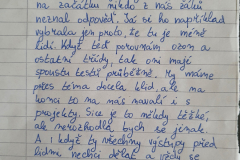 na začátku nikdo z nás začal
neznal odpověď. Šai si ho například
vybrala jen proto, že tu je méně
lidí. Když teď porovnám ozom a
ostatní třídy, tak oni mají
spoustu testů průběžně. My máme
přes téma docela klid, ale na
konci to na nás navalí i s
projekty. Sice je to někdy těžké,
ale nerozhodla bych se jinak.
A i když ty všechny výstupy před
lidmi nechci dělat a vždy se